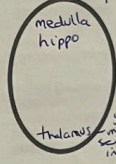 medulla
hippo
thalamus